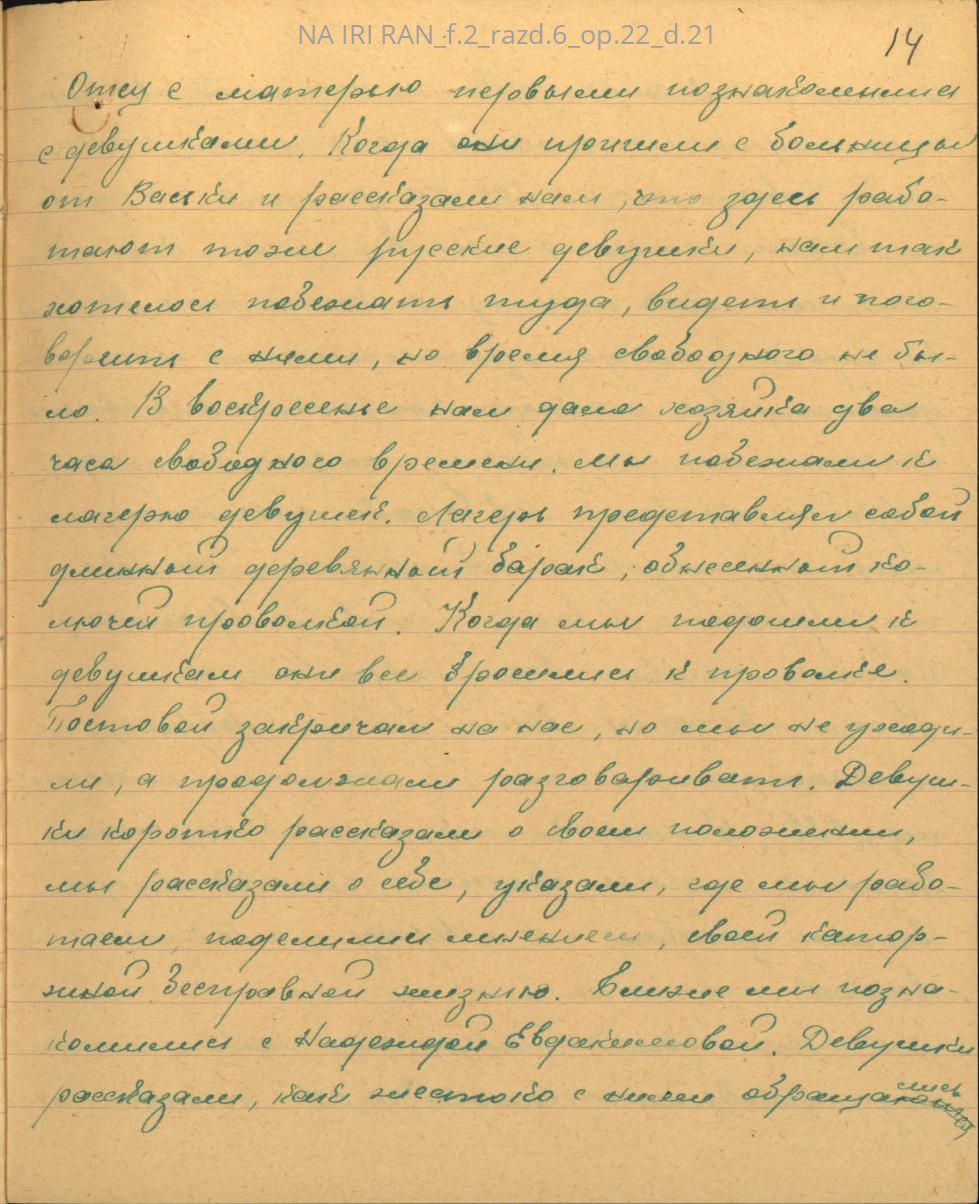 NA IRI RAN_f.2_razd.6_op.22_d.21
14
Отец с матерью первыми познакомились
с девушками. Когда они пришли с больницы
от Васьки и рассказали нам, что здесь рабо-
тают тоже русские девушки, нам так
хотелось побежать туда, видеть и пого-
ворить с ними, но время свободного не бы-
ло. В воскресенье нам дала хозяйка два
часа свободного времени. Мы побежали к
лагерю девушек. Лагерь представлял собой
длинный деревянный барак, обнесенный ко-
лючей проволкой. Когда мы подошли к
девушкам они все бросились к проволке.
Постовой закричал на нас, но мы не уходи-
ли, а продолжали разговаривать. Девуш-
ки коротко рассказали о своем положении,
мы рассказали о себе, указали, где мы рабо-
таем, поделились мнением, своей катор-
жной бесправной жизнью. Ближе мы позна-
комились с Надеждой Евдакимовой. Девушки
рассказали, как жестоко с ними обращались